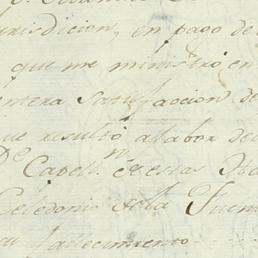 urisdicion, en pago de
que me ministró en
entera satisfaccion de
que resultó a labor de
De Capellⁿ
Celedonio de la Fuen
su fallecimiento